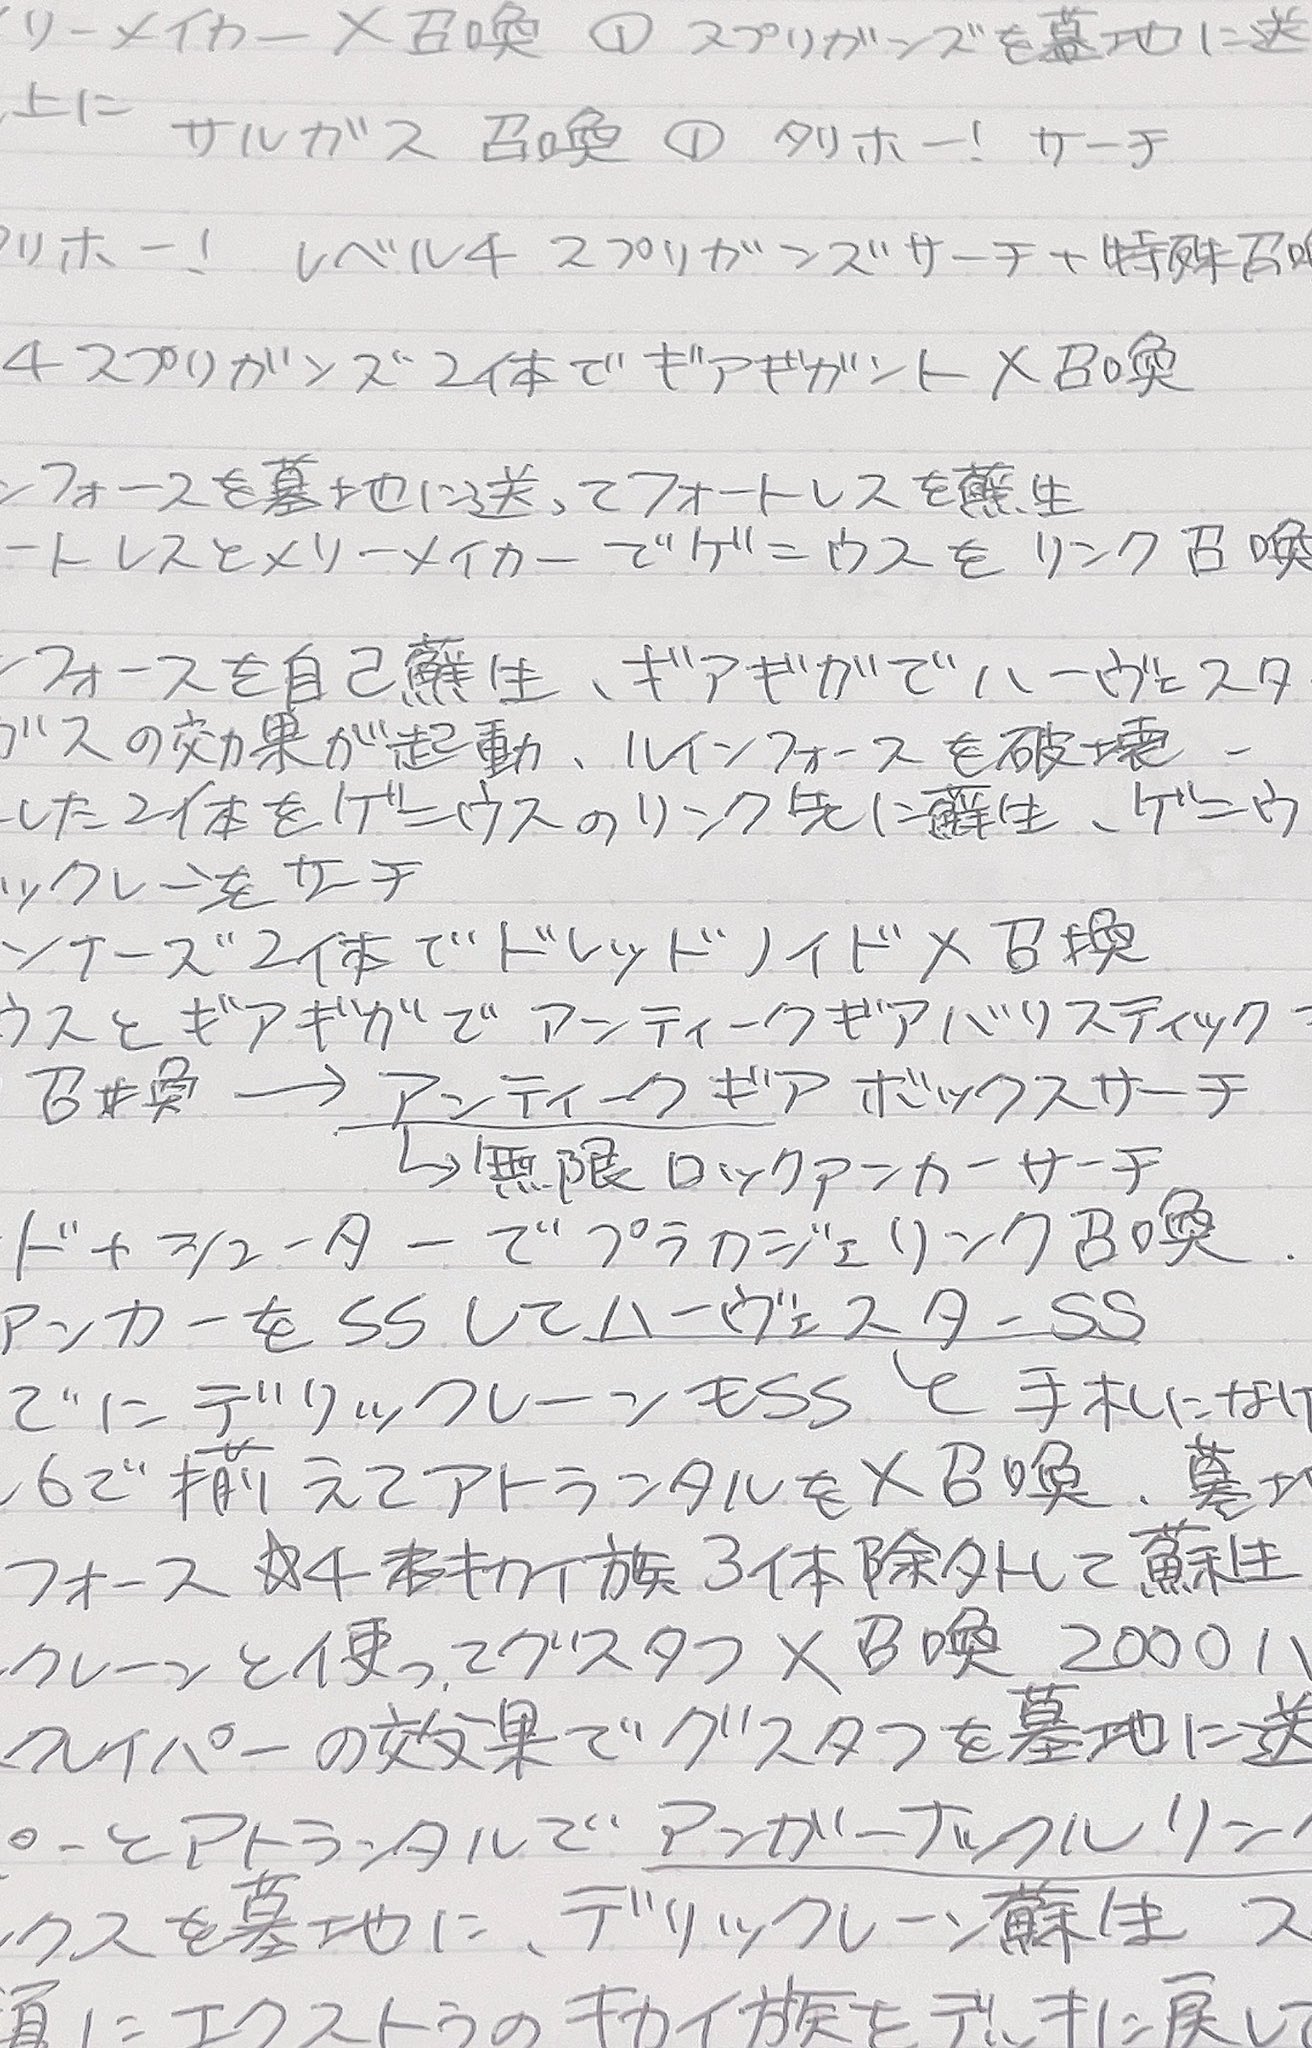 リーメイカー X召喚 ① スプリガンズを墓地に送
上に
サルガス 召喚 ① タリホー! サーチ
リホー! レベル4 スプリガンズサーチ+特殊召喚
4スプリガンズ2体でギアギガントX召喚
ンフォースを墓地に送ってフォートレスを蘇生
ートレスとメリーメイカーでゲニウスをリンク召喚
ンフォースを自己蘇生、ギアギガでハーヴェスター
ガスの効果が起動、ルインフォースを破壊
した2体をゲニウスのリンク先に蘇生、ゲニウ
ックレーンをサーチ
ンナーズ2体でドレッドノイドX召喚
ウスとギアギガでアンティークギアバリスティック
召喚 → アンティークギアボックスサーチ
↳無限ロックアンカーサーチ
ド+シューターでプラカジェリンク召喚.
アンカーをSSしてハーヴェスターSS
でにデリックレーンもSS と手札になけ
ル6で揃えてアトランタルをX召喚.墓地
フォース ☆4キカイ族3体除外して蘇生
クレーンと使ってグスタフX召喚 2000ハ
クレイパーの効果でグスタフを墓地に送
パーとアトランタルでアンガーナックルリンク
ックスを墓地に、デリックレーン蘇生 ス
エクストラのキカイ族をデッキに戻して